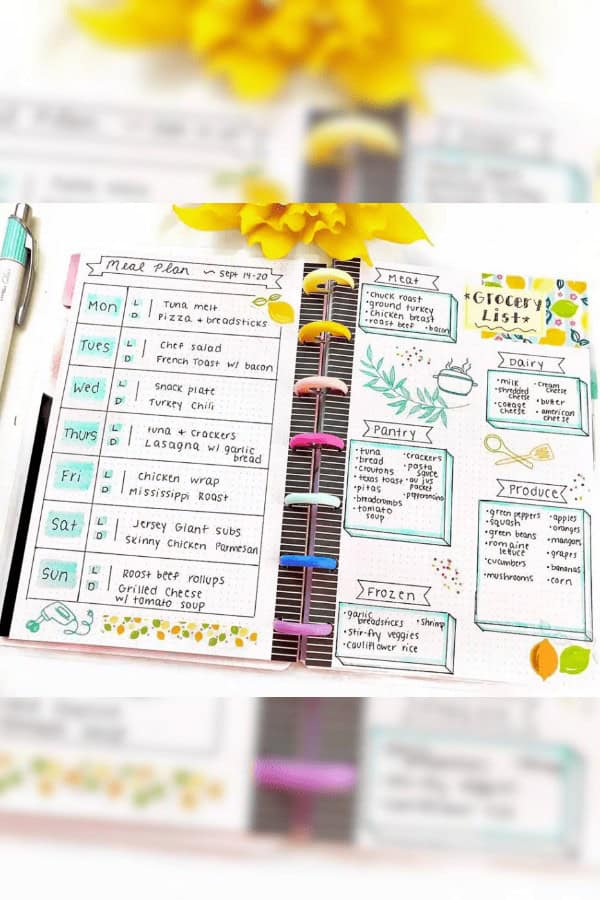 Meal Plan ~ Sept 14-20
Mon
L
D
Tuna melt
Pizza + breadsticks
Tues
L
D
Chef salad
French Toast w/ bacon
Wed
L
D
Snack plate
Turkey Chili
Thurs
L
D
tuna + crackers
Lasagna w/ garlic
bread
Fri
L
D
Chicken wrap
Mississippi Roast
Sat
L
D
Jersey Giant subs
Skinny Chicken Parmesan
Sun
L
D
Roast beef rollups
Grilled Cheese
w/ tomato soup
Meat
•chuck roast
•ground turkey
•chicken breast
•roast beef •bacon
*GROCERY
LIST*
Dairy
•milk
•shredded
cheese
•cottage
cheese
•cream
cheese
•butter
•american
cheese
Pantry
•tuna
•bread
•croutons
•texas toast
•pitas
•breadcrumbs
•tomato
soup
•crackers
•pasta
sauce
•au jus
packet
•pepperoncino
Produce
•green peppers
•squash
•green beans
•romaine
lettuce
•cucumbers
•mushrooms
•apples
•oranges
•mangoes
•grapes
•bananas
•corn
Frozen
•garlic
breadsticks
•shrimp
•stir-fry veggies
•cauliflower rice